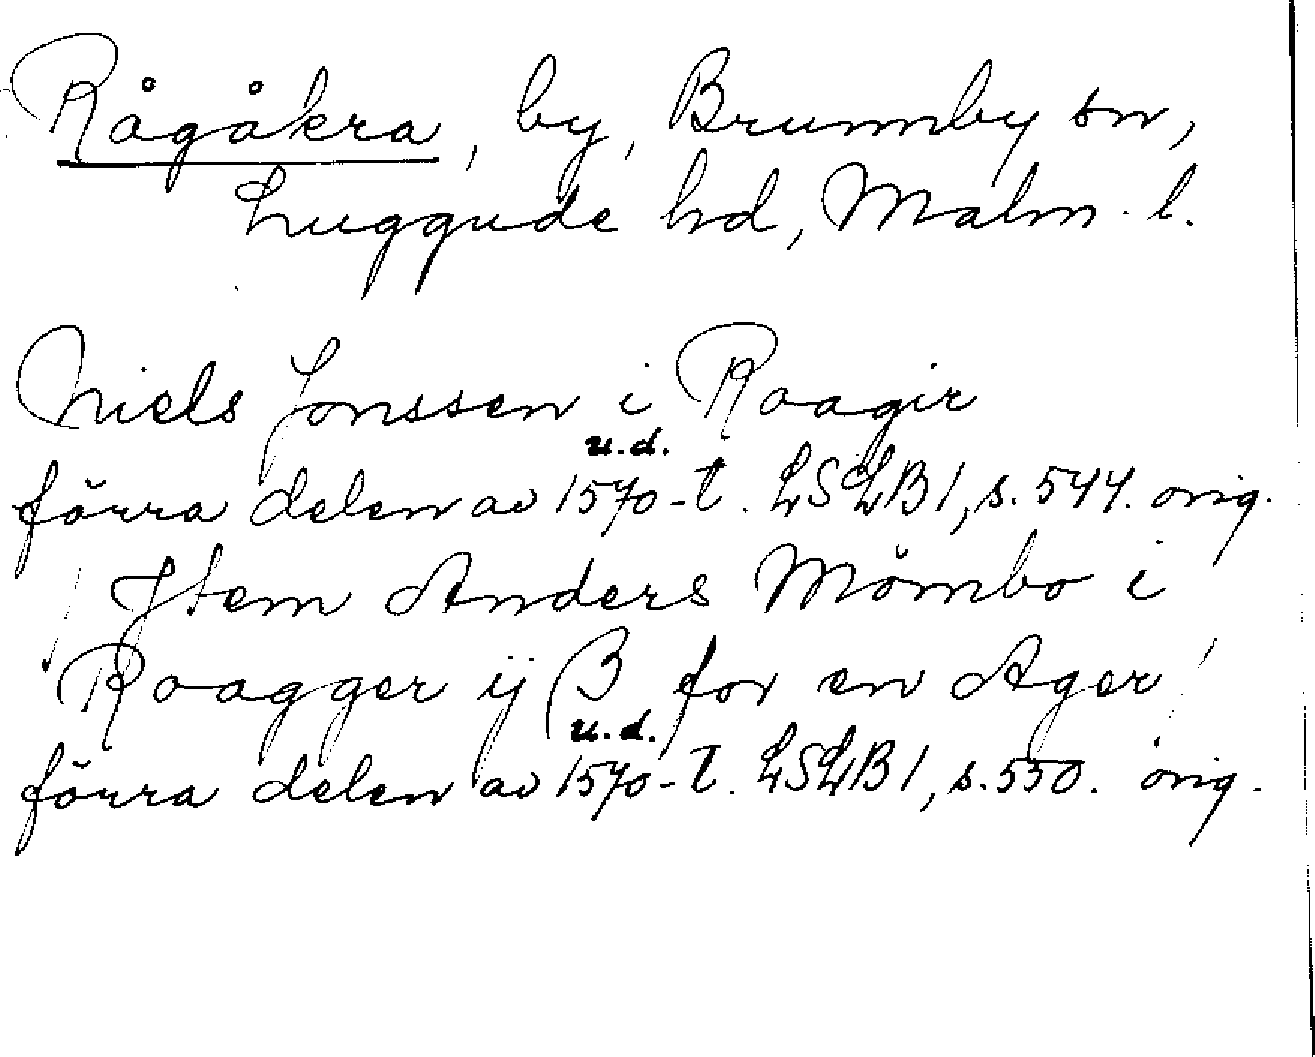 Rågåkra, by, Brunnby sn,
Luggude hd, Malm. l.
Niels Jonssen i Raagir
u.d.
förra delen av 1570-t. LSLB1, s. 544. orig.
Jtem Anders Mömbo i
Raagger ij β for en Ager
u.d.
förra delen av 1570-t. LSLB1, s. 550. orig.